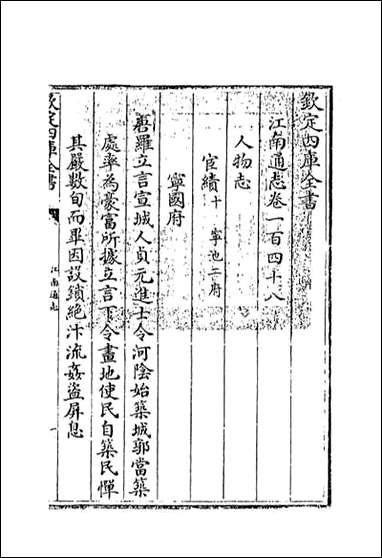 欽定四庫全書
江南通志卷一百四十八
人物志
宦績十 寧池二府
寧國府
唐羅立言宣城人貞元進士令河陰始築城郭當築
處率為豪富所據立言下令畫地使民自築民憚
其嚴數旬而畢因設鎖絕汴流姦盜屏息
欽定四庫全書
江南通志
一